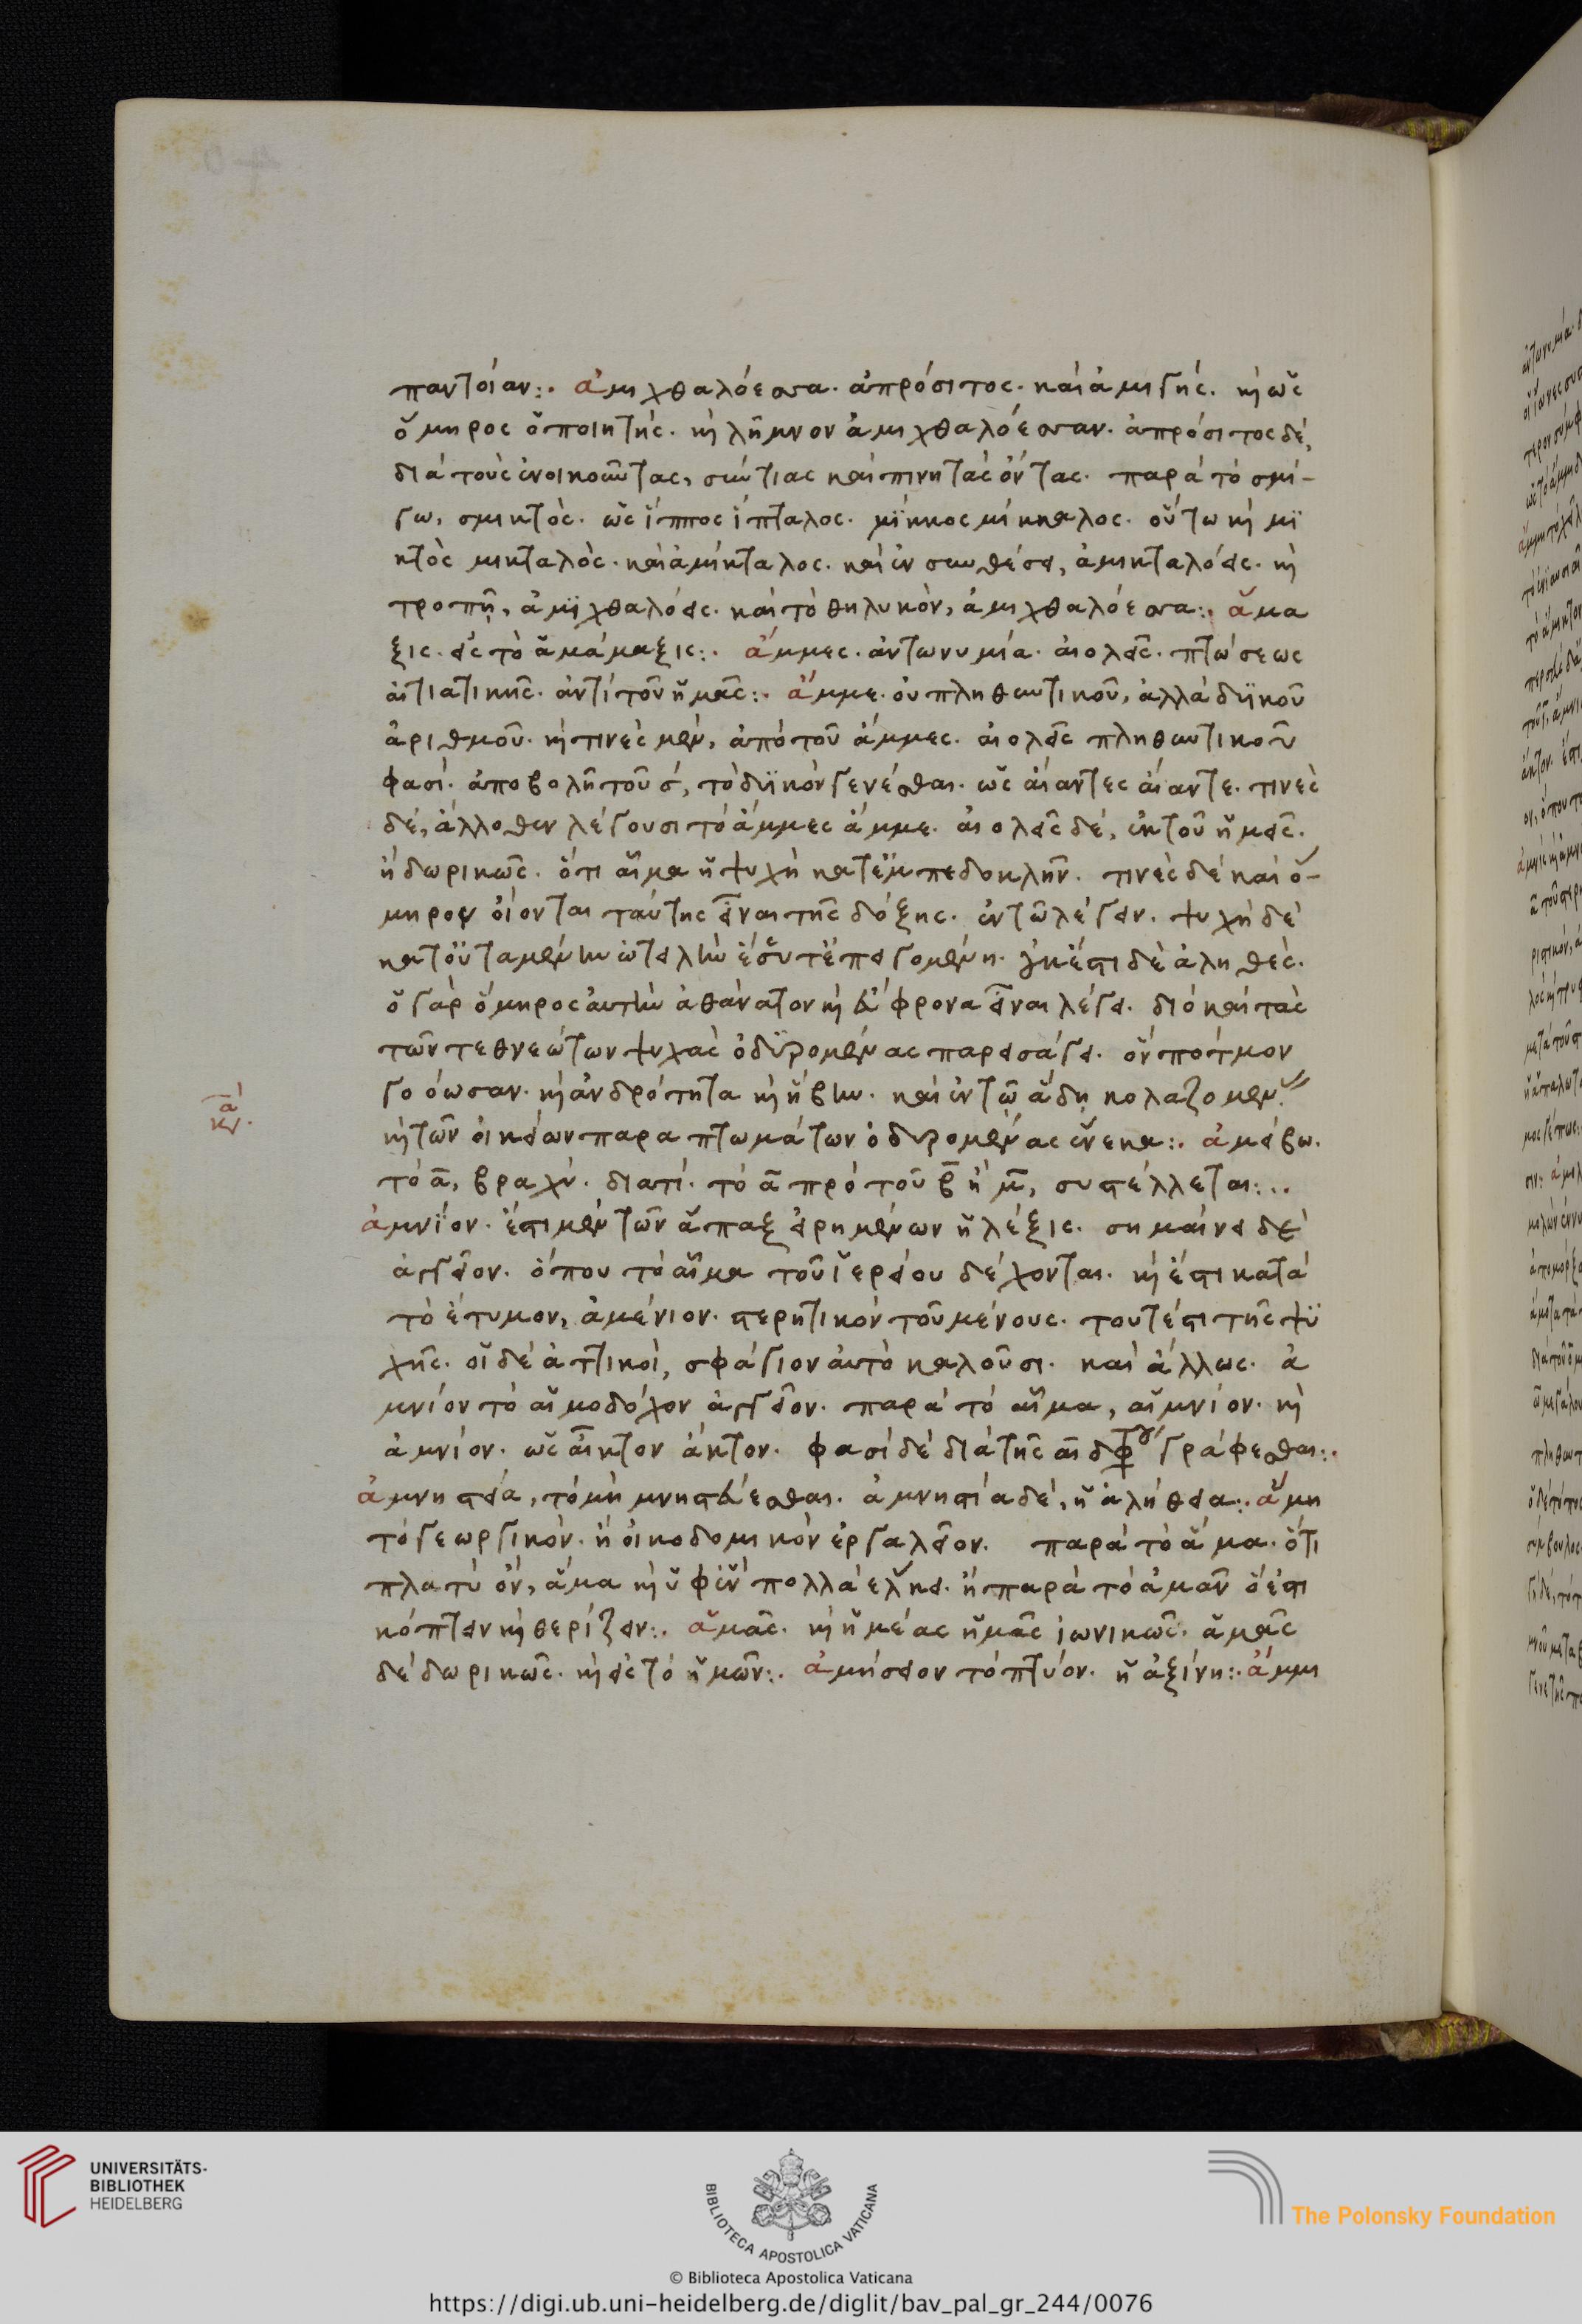 παντοίαν:. ἀμιχθαλόεσσα. ἀπρόσιτος. καὶ ἀμιγής. καὶ ὡς
ὅμηρος ὁ ποιητής. καὶ λῆμνον ἀμιχθαλόεσσαν. ἀπρόσιτος δέ,
διὰ τοὺς ἐνοικοῦντας, σίντιας καὶ πινητὰς ὄντας. παρὰ τὸ σμί-
γω, σμικτὸς. ὡς ἵππος ἵπταλος. μίκκος μίκκαλος. οὕτω καὶ μι
κτὸς μικταλὸς. καὶ ἀμίκταλος. καὶ ἐν συνθέσει, ἀμικταλόεις. καὶ
τροπῇ, ἀμιχθαλόεις. καὶ τὸ θηλυκὸν, ἀμιχθαλόεσσα:. ἅμα
ξις. εἰς τὸ ἁμάμαξις:. ἄμμες. ἀντωνυμία. αἰολεῖς. πτώσεως
αἰτιατικῆς. ἀντὶ τοῦ ἡμᾶς:. ἄμμε. οὐ πληθυντικοῦ, ἀλλὰ δυϊκοῦ
ἀριθμοῦ. καὶ τινὲς μὲν, ἀπὸ τοῦ ἄμμες. αἰολεῖς πληθυντικοῦ
φασὶ. ἀποβολῇ τοῦ σ, τὸ δυϊκὸν γενέσθαι. ὡς αἴαντες αἴαντε. τινὲς
δέ, ἄλλοθεν λέγουσι τὸ ἄμμες ἄμμε. αἰολεῖς δέ, ἐκ τοῦ ἡμεῖς.
ἢ δωρικῶς. ὅτι αἷμα ἡ ψυχὴ κατ' ἐμπεδοκλῆν. τινὲς δὲ καὶ ὅ-
μηρον οἴονται ταύτης εἶναι τῆς δόξης. ἐν τῷ λέγειν. ψυχὴ δὲ
κατ' οὐταμένην ὠτειλὴν ἔσυτ' ἐπειγομένη. οὐκ ἔστι δὲ ἀληθὲς.
ὁ γὰρ ὅμηρος αὐτὴν ἀθάνατον καὶ εὔφρονα εἶναι λέγει. διὸ καὶ τὰς
τῶν τεθνεώτων ψυχὰς ὀδυρομένας παρεισάγει. ὃν πότμον
γοόωσαν. καὶ ἀνδρότητα καὶ ἥβην. καὶ ἐν τῷ ἅδῃ κολαζομένας
καὶ τῶν οἰκείων παραπτωμάτων ὀδυρομένας ἕνεκα:. ἀμείβω.
τὸ α, βραχύ. διατί. τὸ α πρὸ τοῦ β ἢ μ, συστέλλεται:..
ἀμνίον. ἔστι μὲν τῶν ἅπαξ εἰρημένων ἡ λέξις. σημαίνει δὲ
ἀγγεῖον. ὅπου τὸ αἷμα τοῦ ἱερείου δέχονται. καὶ ἔστι κατὰ
τὸ ἔτυμον, ἀμένιον. στερητικὸν τοῦ μένους. τουτέστι τῆς ψυ
χῆς. οἱ δὲ ἀττικοὶ, σφάγιον αὐτὸ καλοῦσι. καὶ ἄλλως. ἀ
μνίον τὸ αἱμοδόχον ἀγγεῖον. παρὰ τὸ αἷμα, αἱμνίον. καὶ
ἀμνίον. ὡς αἶκτον ἄκτον. φασὶ δὲ διὰ τῆς αι διφθόγγου γράφεσθαι:.
ἀμνηστεία, τὸ μὴ μνηστεύεσθαι. ἀμνηστία δέ, ἡ ἀλήθεια:. ἄμη
τὸ γεωργικὸν. ἢ οἰκοδομικὸν ἐργαλεῖον. παρὰ τὸ ἅμα. ὅτι
πλατὺ ὂν, ἅμα καὶ ὑφ' ἓν πολλὰ ἕλκει. ἢ παρὰ τὸ ἀμᾶν ὅ ἐστι
κόπτειν καὶ θερίζειν:. ἁμᾶς. καὶ ἡμέας ἡμᾶς ἰωνικῶς. ἁμᾶς
δὲ δωρικῶς. καὶ εἰς τὸ ἡμῶν:. ἀμήσειον τὸ πτύον. ἢ ἀξίνη:. ἄμμι
UNIVERSITÄTS-
BIBLIOTHEK
HEIDELBERG
BIBLIOTECA APOSTOLICA VATICANA
The Polonsky Foundation
© Biblioteca Apostolica Vaticana
https://digi.ub.uni-heidelberg.de/diglit/bav_pal_gr_244/0076